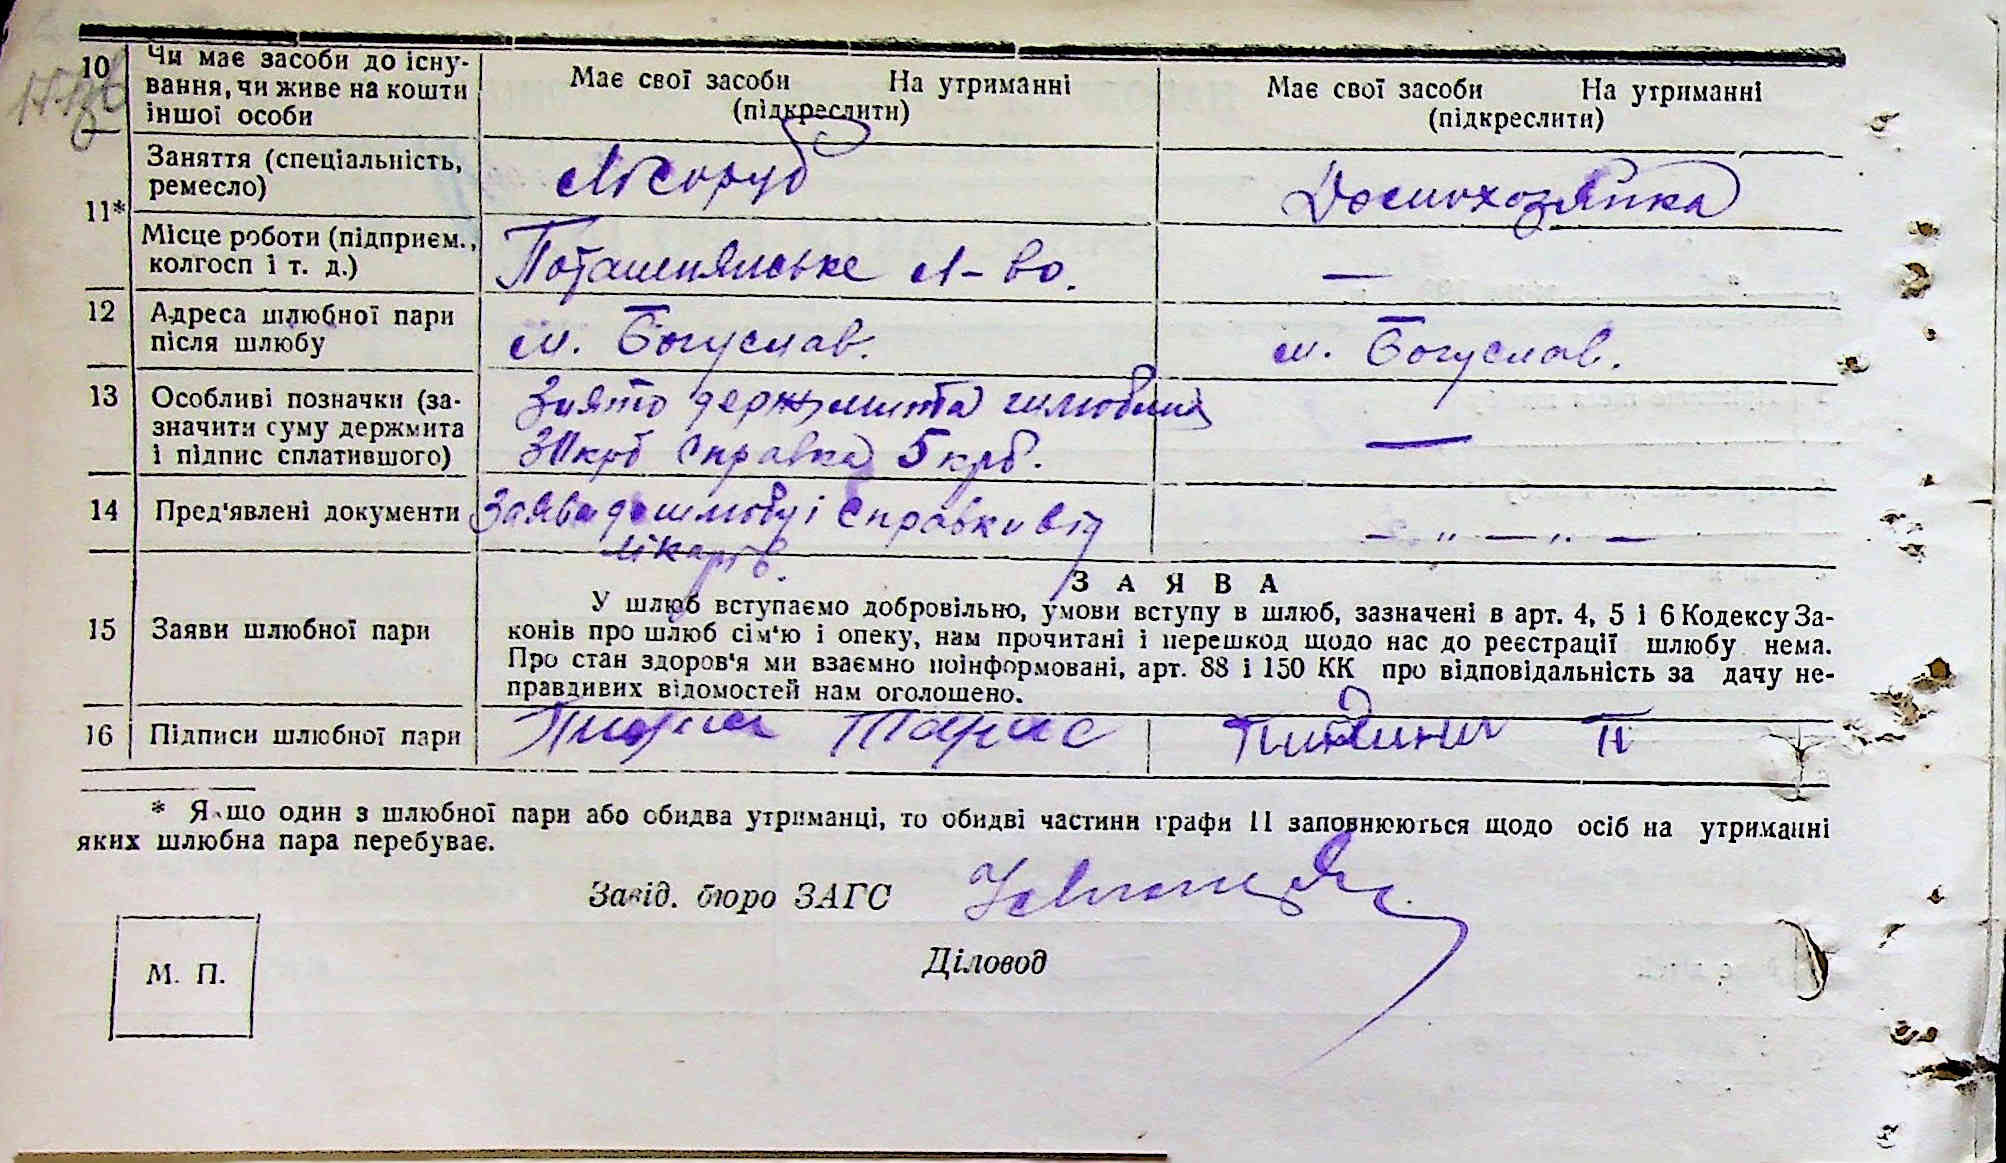 10 Чи має засоби до існу-
вання, чи живе на кошти
іншої особи
Має свої засоби На утриманні
(підкреслити)
Має свої засоби На утриманні
(підкреслити)
11*
Заняття (спеціальність,
ремесло)
Лісоруб
Домохозяйка
Місце роботи (підприєм.,
колгосп і т. д.)
Поташнянське л-во.
—
12 Адреса шлюбної пари
після шлюбу
м. Богуслав.
м. Богуслав.
13 Особливі позначки (за-
значити суму держмита
і підпис сплатившого)
Знято держмита
крб справка 5 крб.
—
14 Пред'явлені документи
Заява до шлюбу і справки від
лікарів.
— „ — „ —
15 Заяви шлюбної пари
ЗАЯВА
У шлюб вступаємо добровільно, умови вступу в шлюб, зазначені в арт. 4, 5 і 6 Кодексу За-
конів про шлюб сім'ю і опеку, нам прочитані і перешкод щодо нас до реєстрації шлюбу нема.
Про стан здоров'я ми взаємно поінформовані, арт. 88 і 150 КК про відповідальність за дачу не-
правдивих відомостей нам оголошено.
16 Підписи шлюбної пари
Тарас
П
* Якщо один з шлюбної пари або обидва утриманці, то обидві частини графи 11 заповнюються щодо осіб на утриманні
яких шлюбна пара перебуває.
Завід. бюро ЗАГС
Діловод
М. П.